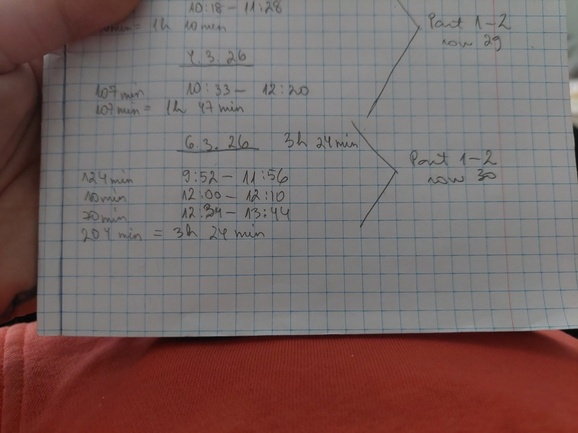 10:18 - 11:28
= 1h 10 min
Part 1-2
row 29
4.3.26
107 min 10:33 - 12:20
107 min = 1h 47 min
6.3.26 3h 24 min
Part 1-2
row 30
124 min 9:52 - 11:56
10 min 12:00 - 12:10
70 min 12:34 - 13:44
204 min = 3h 24 min